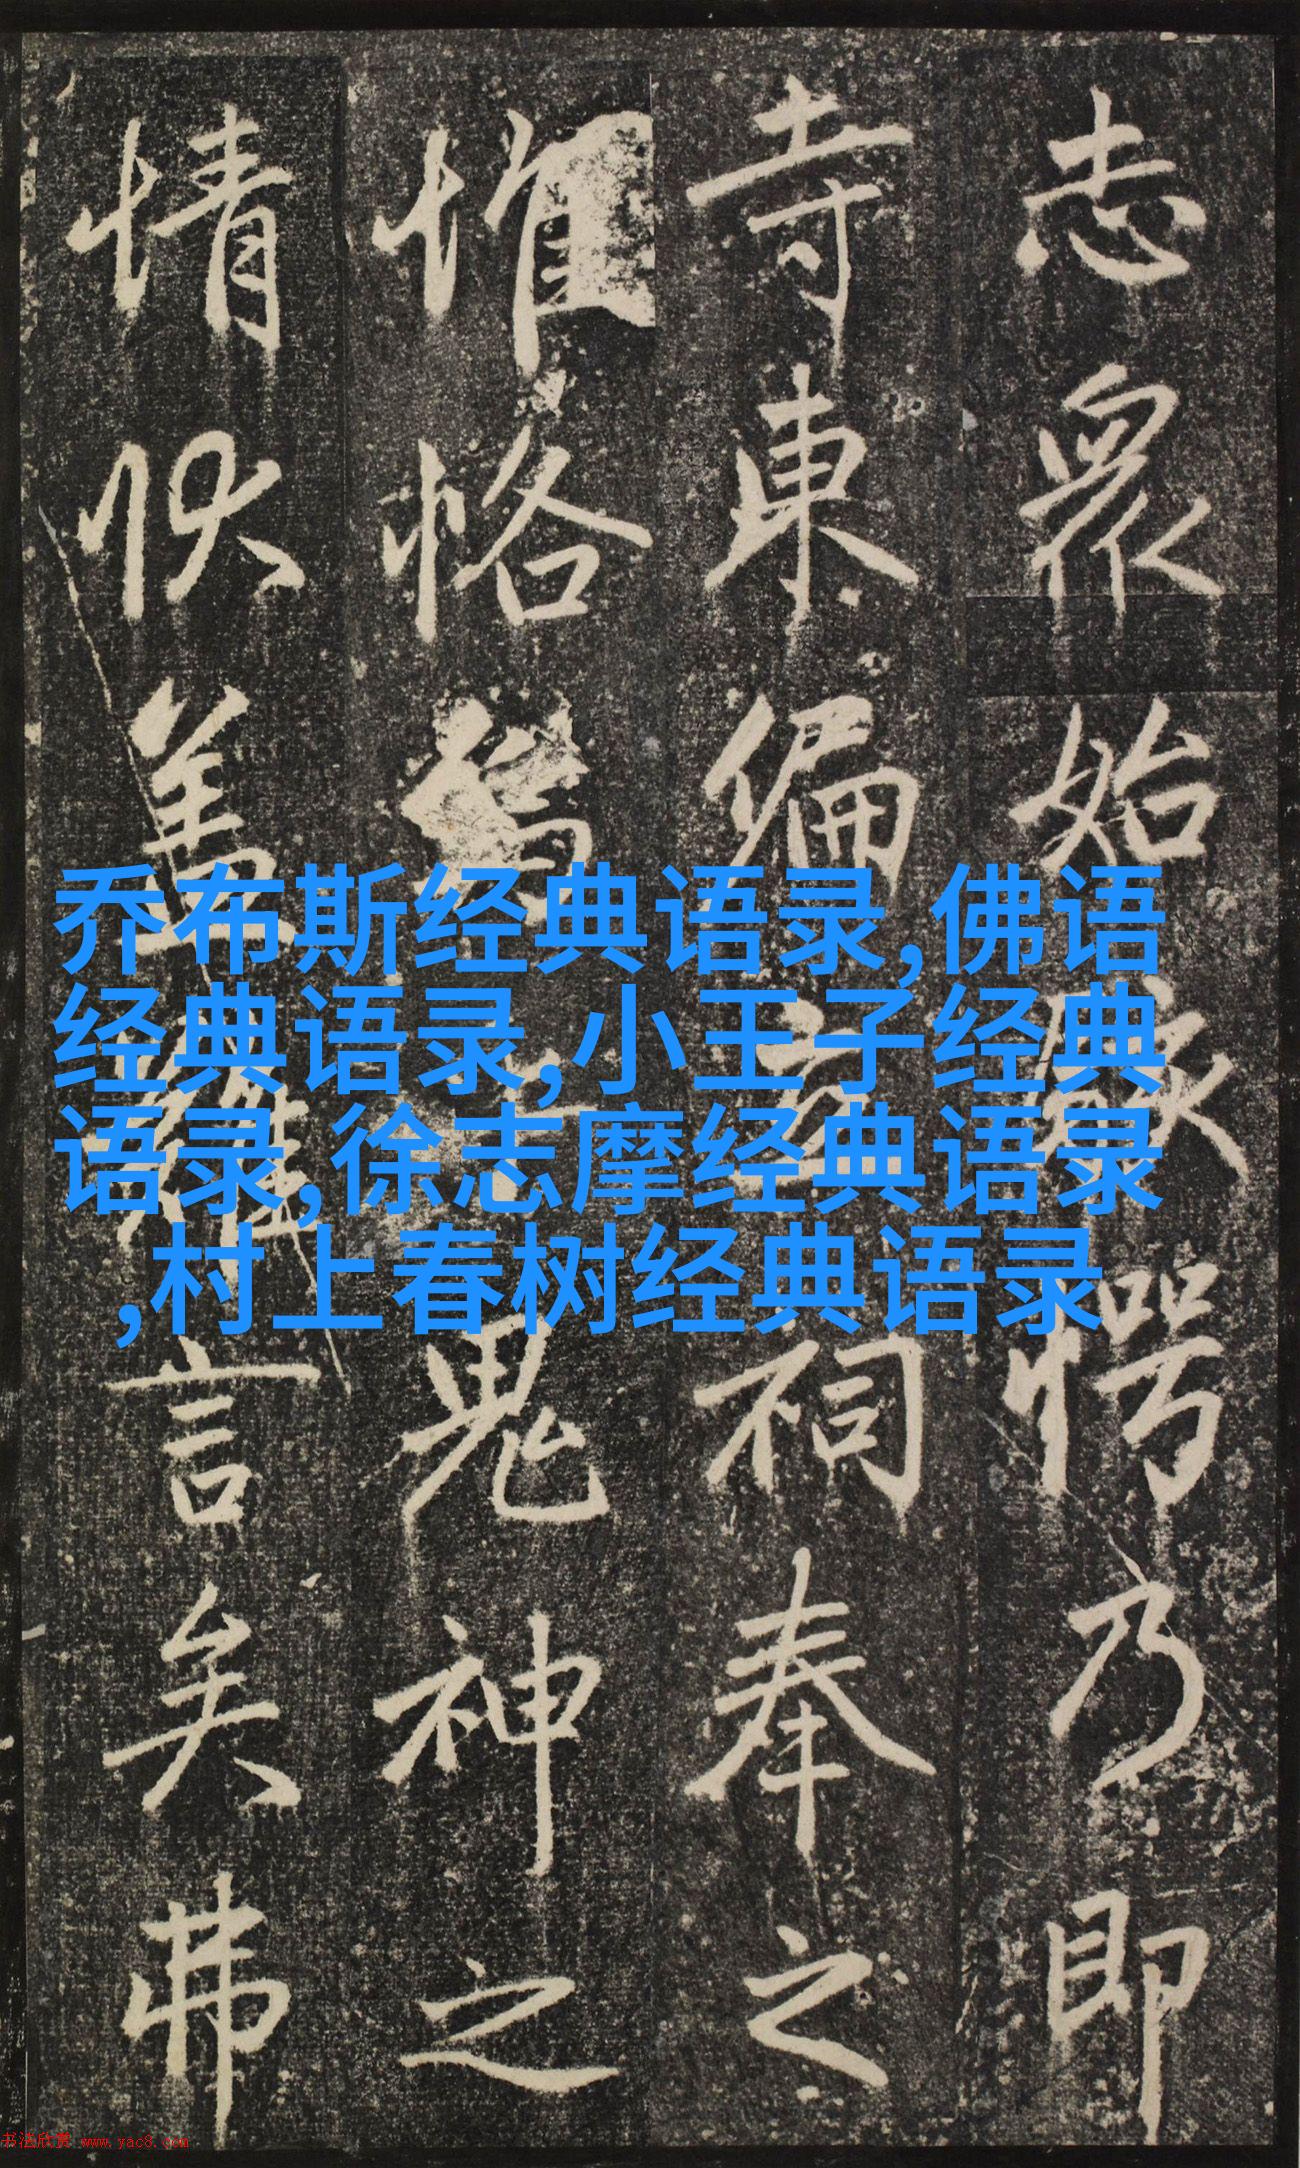 志衆始驚愕乃即
寺東偏立祠奉之
惟恪為鬼神之
情伏盖難言矣弗
乔布斯经典语录,佛语
经典语录,小王子经典
语录,徐志摩经典语录
,村上春树经典语录
书法欣赏 www.yac8.com